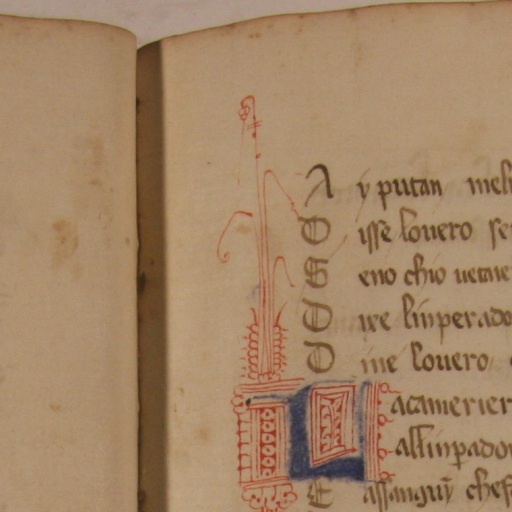 A y putan mel
D isse lovero se
S eno chio vetve
D ire linperado
D ime lovero
L acamerier
allinpador
E assanguy chef